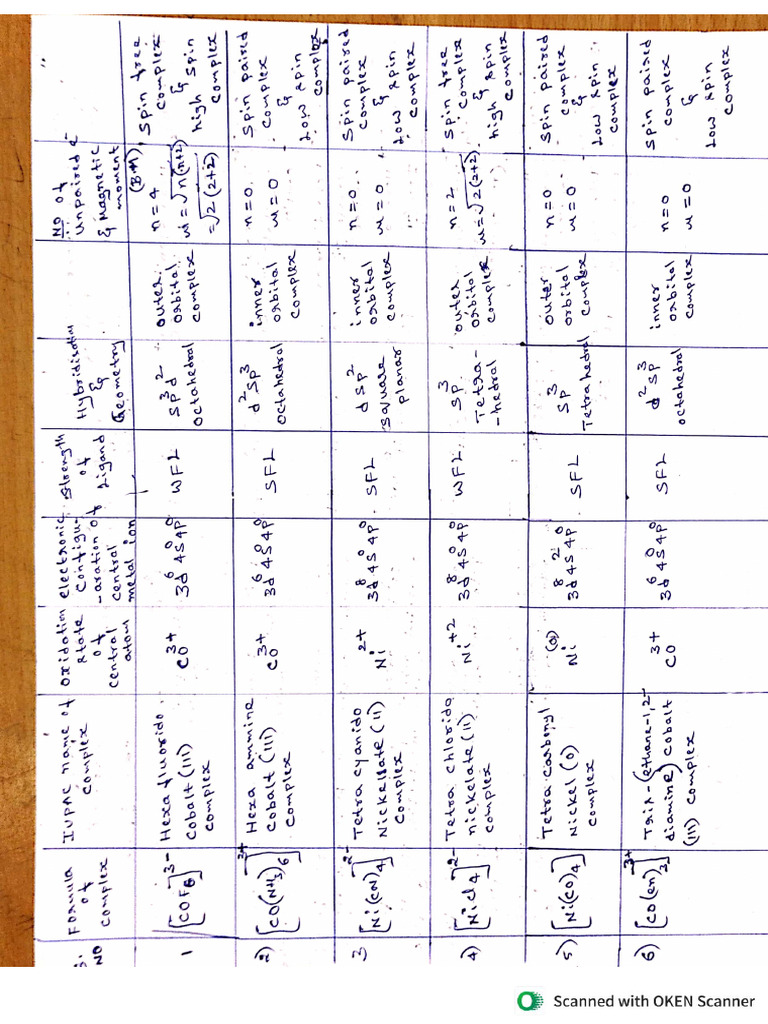 S. NO
Formula of complex
IUPAC name of complex
Oxidation state of central atom
electronic Configu-aration of central metal ion
Strength of Ligand
Hybridisation & Geometry
NO of unpaired e⁻ & Magnetic moment (B.M)
1
[COF6]³⁻
Hexa fluorido Cobalt (III) complex
CO³⁺
3d⁶ 4s⁰ 4p⁰
WFL
sp³d² octahedral
outer orbital complex
n = 4 μ = √n(n+2) = √2(2+2)
Spin free complex & high spin complex
2)
[CO(NH3)6]³⁺
Hexa ammine Cobalt (III) Complex
CO³⁺
3d⁶ 4s⁰ 4p⁰
SFL
d²sp³ octahedral
inner orbital complex
n=0 μ=0
Spin paired Complex & Low spin complex
3
[Ni(CN)4]²⁻
Tetra cyanido Nickelate (II) Complex
Ni²⁺
3d⁸ 4s⁰ 4p⁰
SFL
dsp² square planar
inner orbital complex
n=0 μ=0
Spin paired Complex & Low spin complex
4)
[NiCl4]²⁻
Tetra chlorido nickelate (II) complex
Ni⁺²
3d⁸ 4s⁰ 4p⁰
WFL
sp³ Tetra-hedral
outer orbital complex
n=2 μ=√2(2+2)
Spin free complex & high spin complex
5)
[Ni(CO)4]
Tetra carbonyl Nickel (0) Complex
Ni⁽⁰⁾
3d⁸ 4s² 4p⁰
SFL
sp³ Tetrahedral
outer orbital complex
n=0 μ=0
Spin paired complex & Low spin complex
6)
[CO(en)3]³⁺
Tris-(ethane-1,2-diamine) cobalt (III) complex
CO³⁺
3d⁶ 4s⁰ 4p⁰
SFL
d²sp³ octahedral
inner orbital complex
n=0 μ=0
Spin paired complex & Low spin complex
Scanned with OKEN Scanner